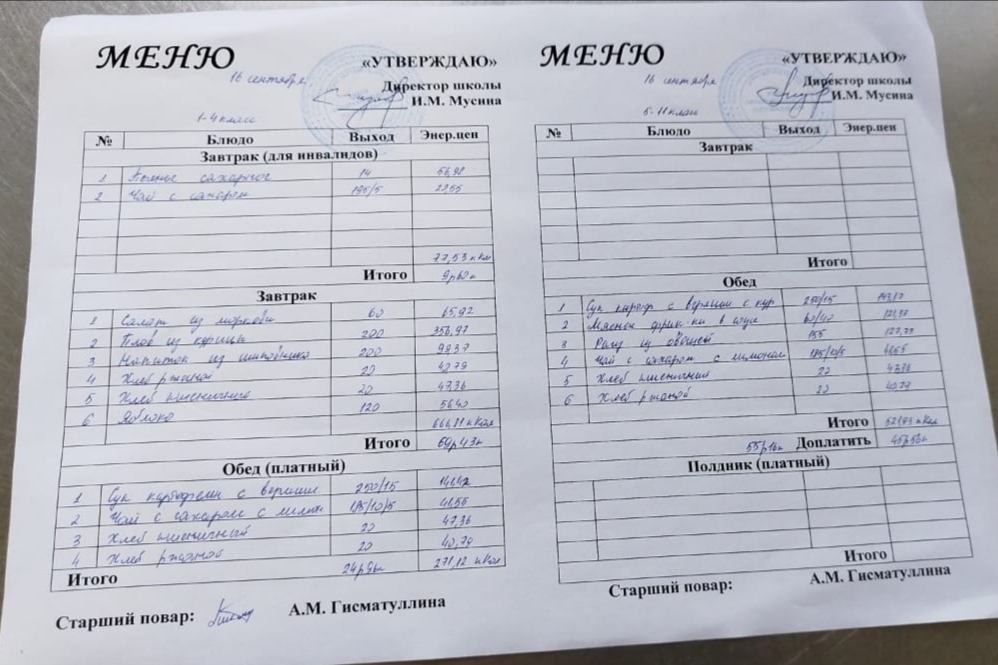 МЕНЮ
«УТВЕРЖДАЮ»
16 сентября
Директор школы
И.М. Мусина
1-4 класс
№ Блюдо Выход Энер.цен
Завтрак (для инвалидов)
1 Печенье сахарное 14 56,98
2 Чай с сахаром 195/5
77,53 кКал
Итого
Завтрак
1 Салат из моркови 60 65,92
2 Плов из курицы 200 356,97
3 Напиток из шиповника 200
4 Хлеб ржаной 20 40,79
5 Хлеб пшеничный 20 47,36
6 Яблоко 120 56,40
Итого 69р43к
Обед (платный)
1 Суп картофелн с вермиш 250/15 141,42
2 Чай с сахаром с лимон 195/10/5 41,55
3 Хлеб пшеничный 20 47,36
4 Хлеб ржаной 20 40,79
Итого 271,12 кКал
Старший повар: А.М. Гисматуллина
МЕНЮ
«УТВЕРЖДАЮ»
16 сентября
Директор школы
И.М. Мусина
5-11 класс
№ Блюдо Выход Энер.цен
Завтрак
Итого
Обед
1 Суп картоф с вермиш с кур 250/15
2 Мясные в соусе
3 Рагу из овощей 155
4 Чай с сахаром с лимоном 195/10/5 41,55
5 Хлеб пшеничный 20 47,36
6 Хлеб ржаной 20 40,79
Итого
Доплатить
Полдник (платный)
Итого
Старший повар: А.М. Гисматуллина